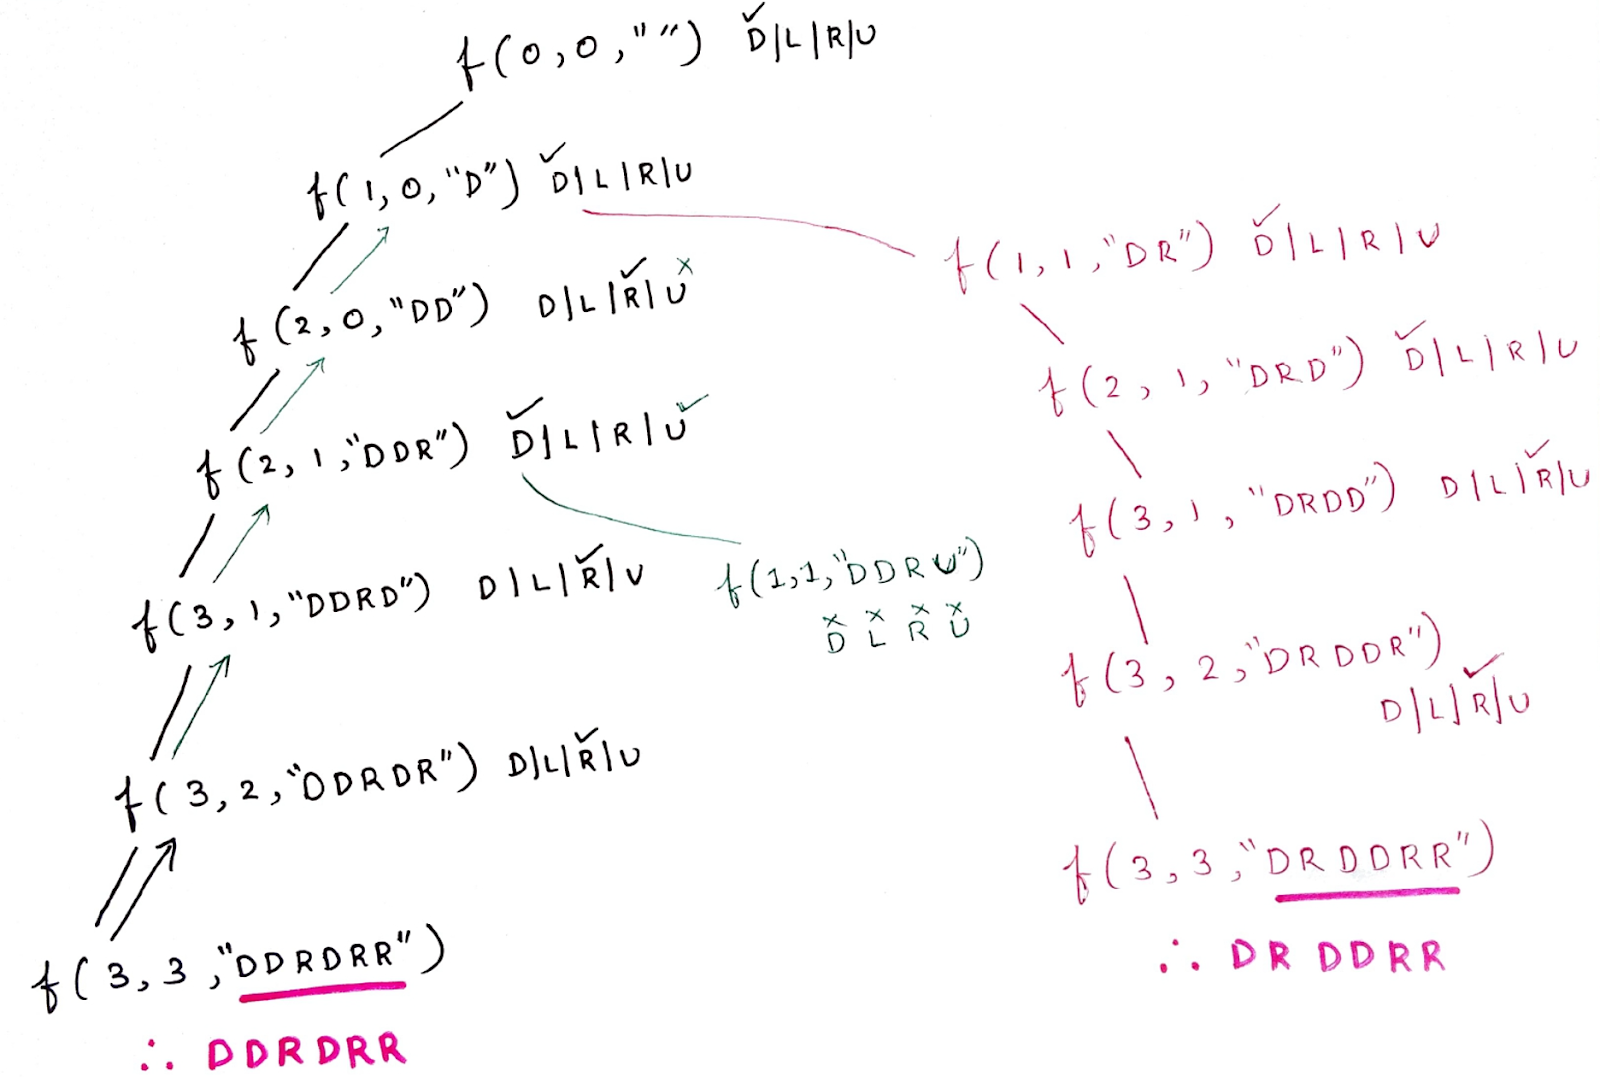 f(0,0,"") D|L|R|U
f(1,0,"D") D|L|R|U
f(2,0,"DD") D|L|R|U
f(2,1,"DDR") D|L|R|U
f(3,1,"DDRD") D|L|R|U
f(1,1,"DDRU")
D L R U
f(3,2,"DDRDR") D|L|R|U
f(3,3,"DDRDRR")
∴ DDRDRR
f(1,1,"DR") D|L|R|U
f(2,1,"DRD") D|L|R|U
f(3,1,"DRDD") D|L|R|U
f(3,2,"DRDDR")
D|L|R|U
f(3,3,"DRDDRR")
∴ DRDDRR